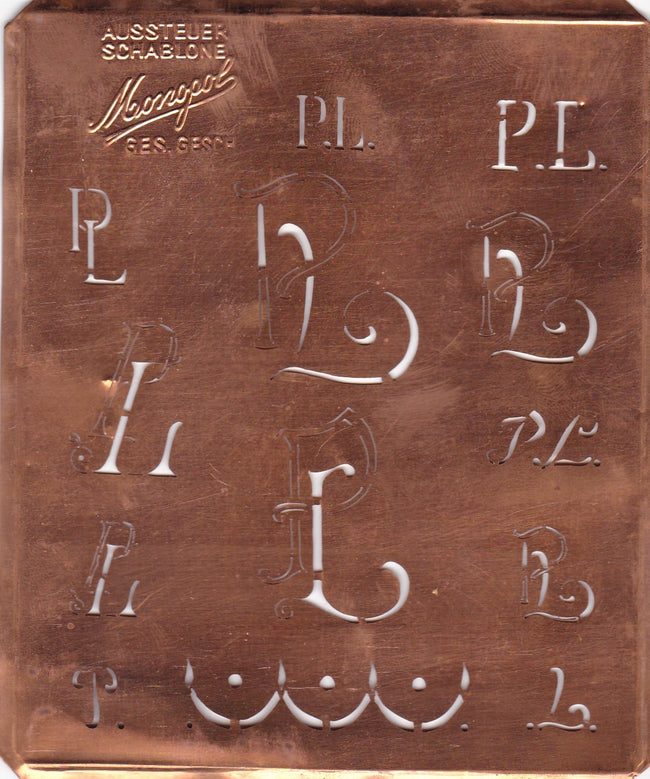 AUSSTEUER
SCHABLONE
Mongool
GES. GESCH
P.L.
P.L.
PL
PL
PL
PL
P.L.
PL
PL
PL
P.
L.